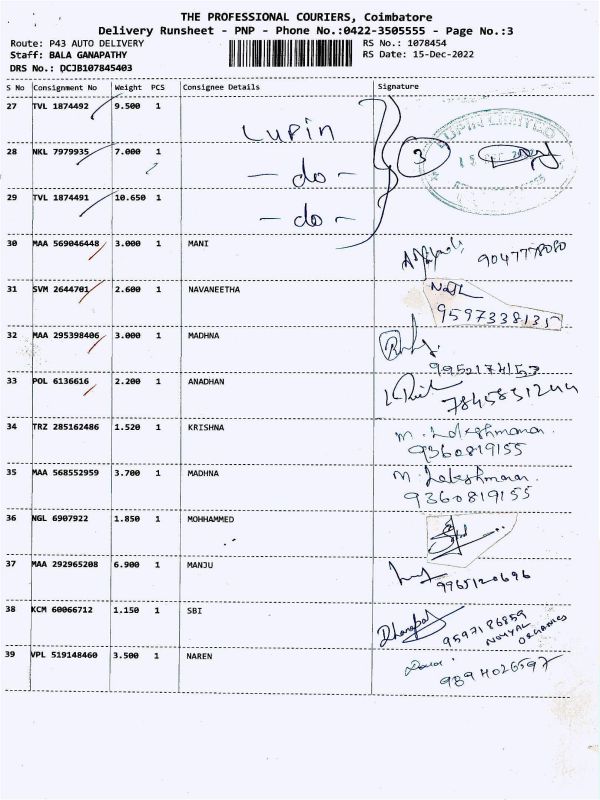 THE PROFESSIONAL COURIERS, Coimbatore
Delivery Runsheet - PNP - Phone No.:0422-3505555 - Page No.:3
Route: P43 AUTO DELIVERY RS No.: 1078454
Staff: BALA GANAPATHY RS Date: 15-Dec-2022
DRS No.: DCJB107845403
S No Consignment No Weight PCS Consignee Details Signature
27 TVL 1874492 9.500 1 Lupin
LUPIN LIMITED
28 NKL 7979935 7.000 1 - do - 3
29 TVL 1874491 10.650 1 - do -
30 MAA 569046448 3.000 1 MANI 9047778080
31 SVM 2644701 2.600 1 NAVANEETHA
9597338135
32 MAA 295398406 3.000 1 MADHNA
9952174153
33 POL 6136616 2.200 1 ANADHAN
7845831244
34 TRZ 285162486 1.520 1 KRISHNA M. Lakshmanan.
9360819155
35 MAA 568552959 3.700 1 MADHNA M. Lakshmanan.
9360819155
36 NGL 6907922 1.850 1 MOHHAMMED
37 MAA 292965208 6.900 1 MANJU 9965120696
38 KCM 60066712 1.150 1 SBI Dhanapal 9597186859
NOYYAL ORGANICS
39 VPL 519148460 3.500 1 NAREN
9894026597